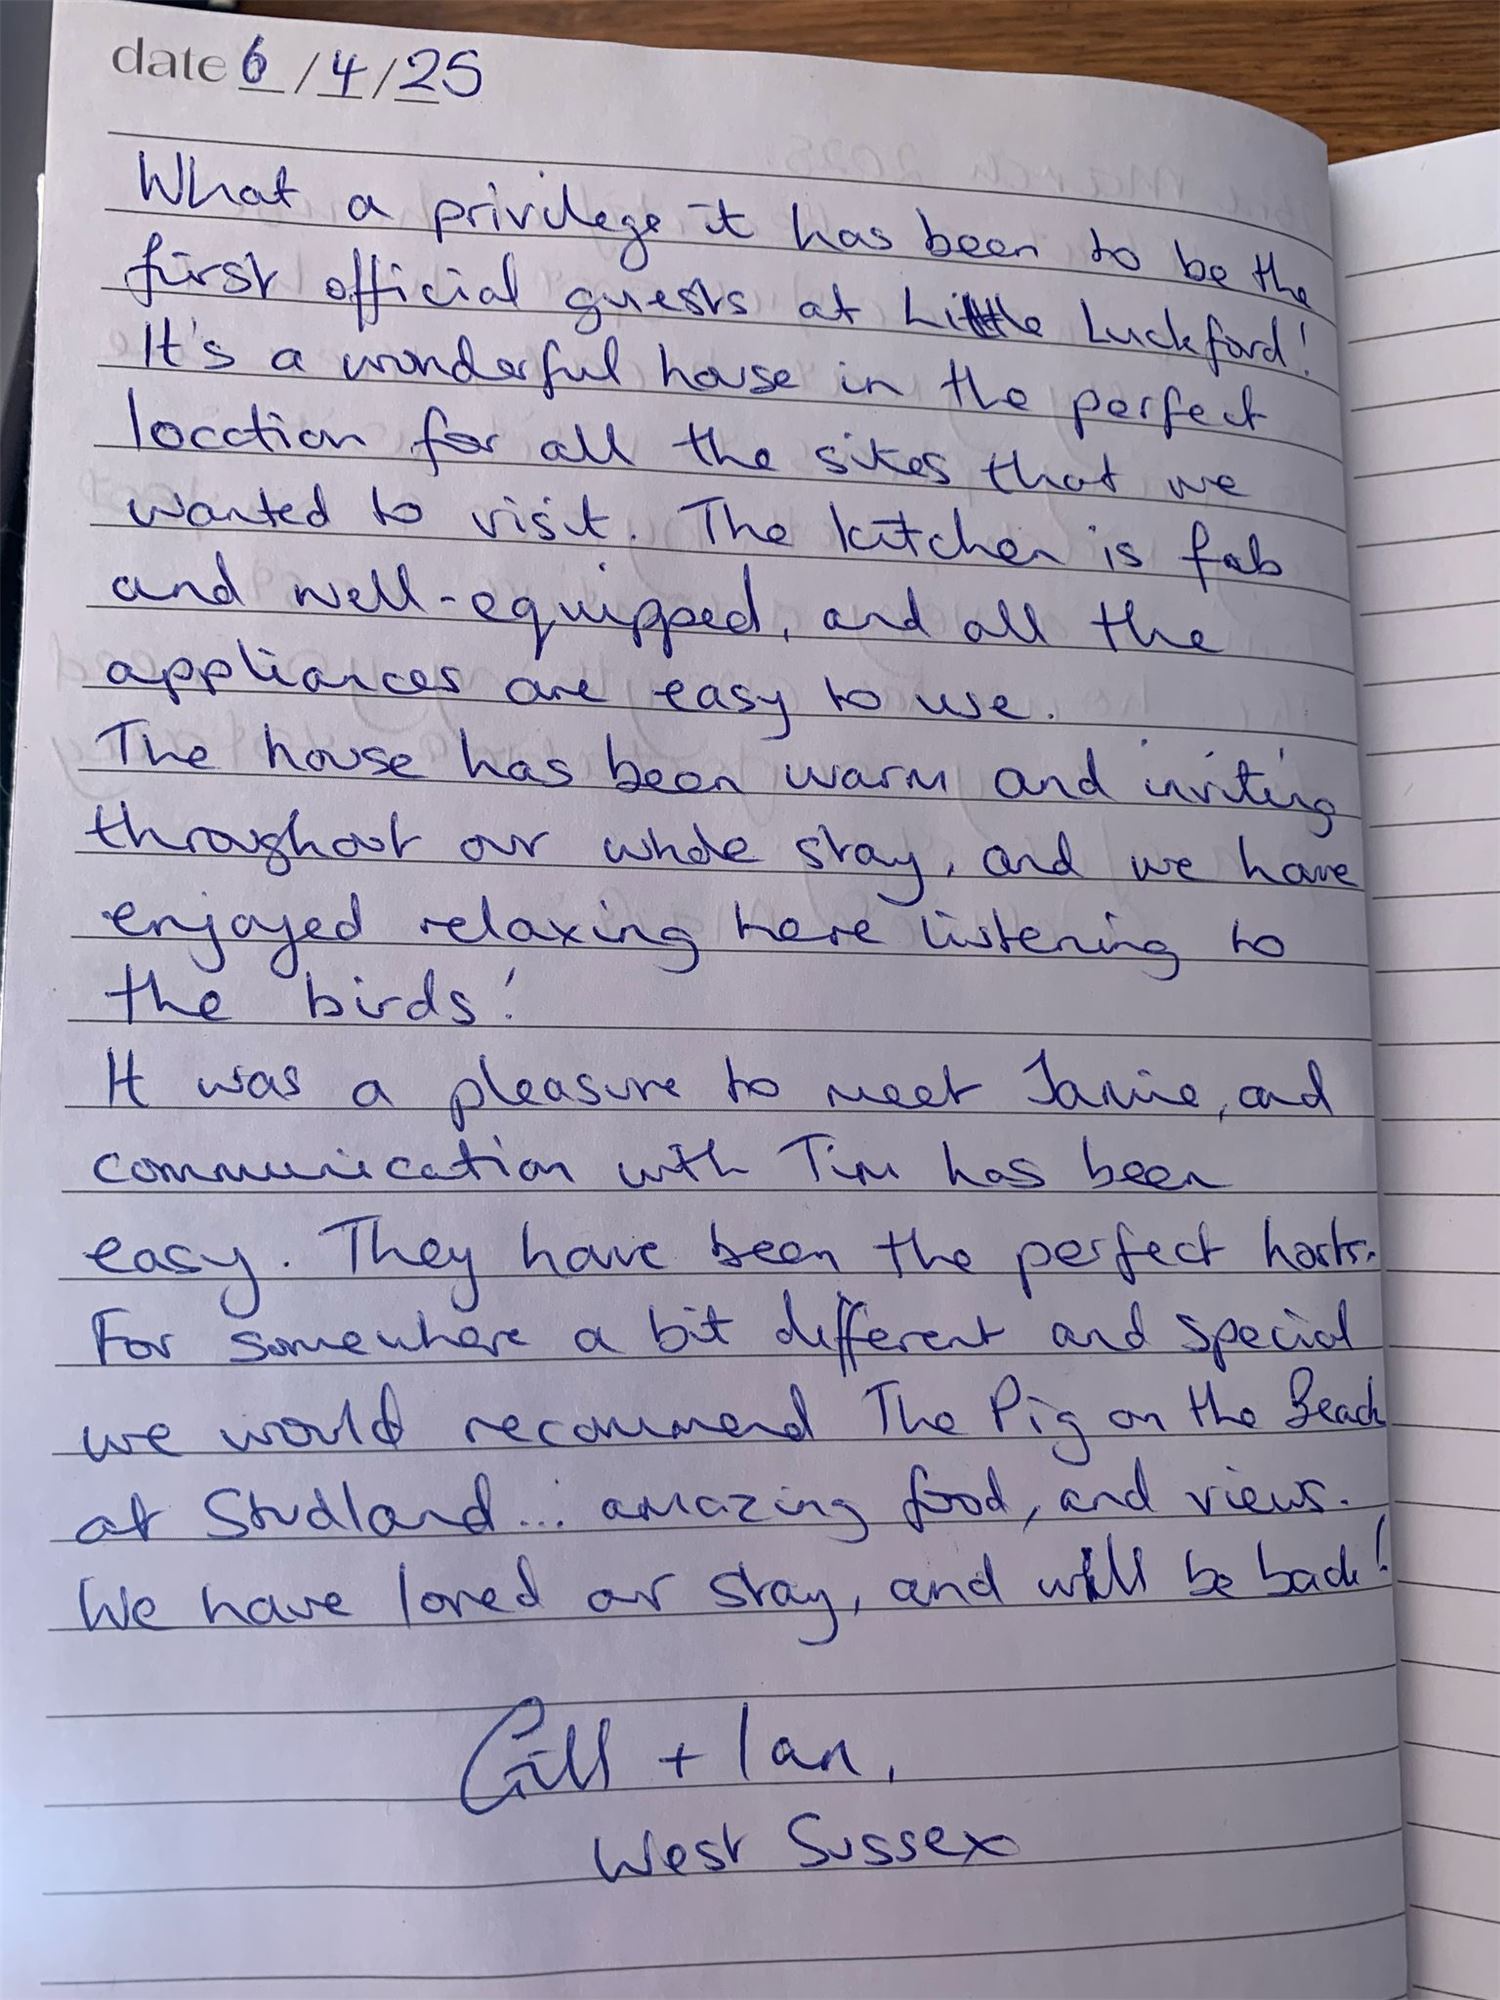 date 6/4/25
What a privilege it has been to be the
first official guests at Little Luckford!
It's a wonderful house in the perfect
location for all the sites that we
wanted to visit. The kitchen is fab
and well-equipped, and all the
appliances are easy to use.
The house has been warm and inviting
throughout our whole stay, and we have
enjoyed relaxing here listening to
the birds!
It was a pleasure to meet Jamie, and
communication with Tim has been
easy. They have been the perfect hosts.
For somewhere a bit different and special
we would recommend The Pig on the Beach
at Studland... amazing food, and views.
We have loved our stay, and will be back!
Gill + Ian,
West Sussex